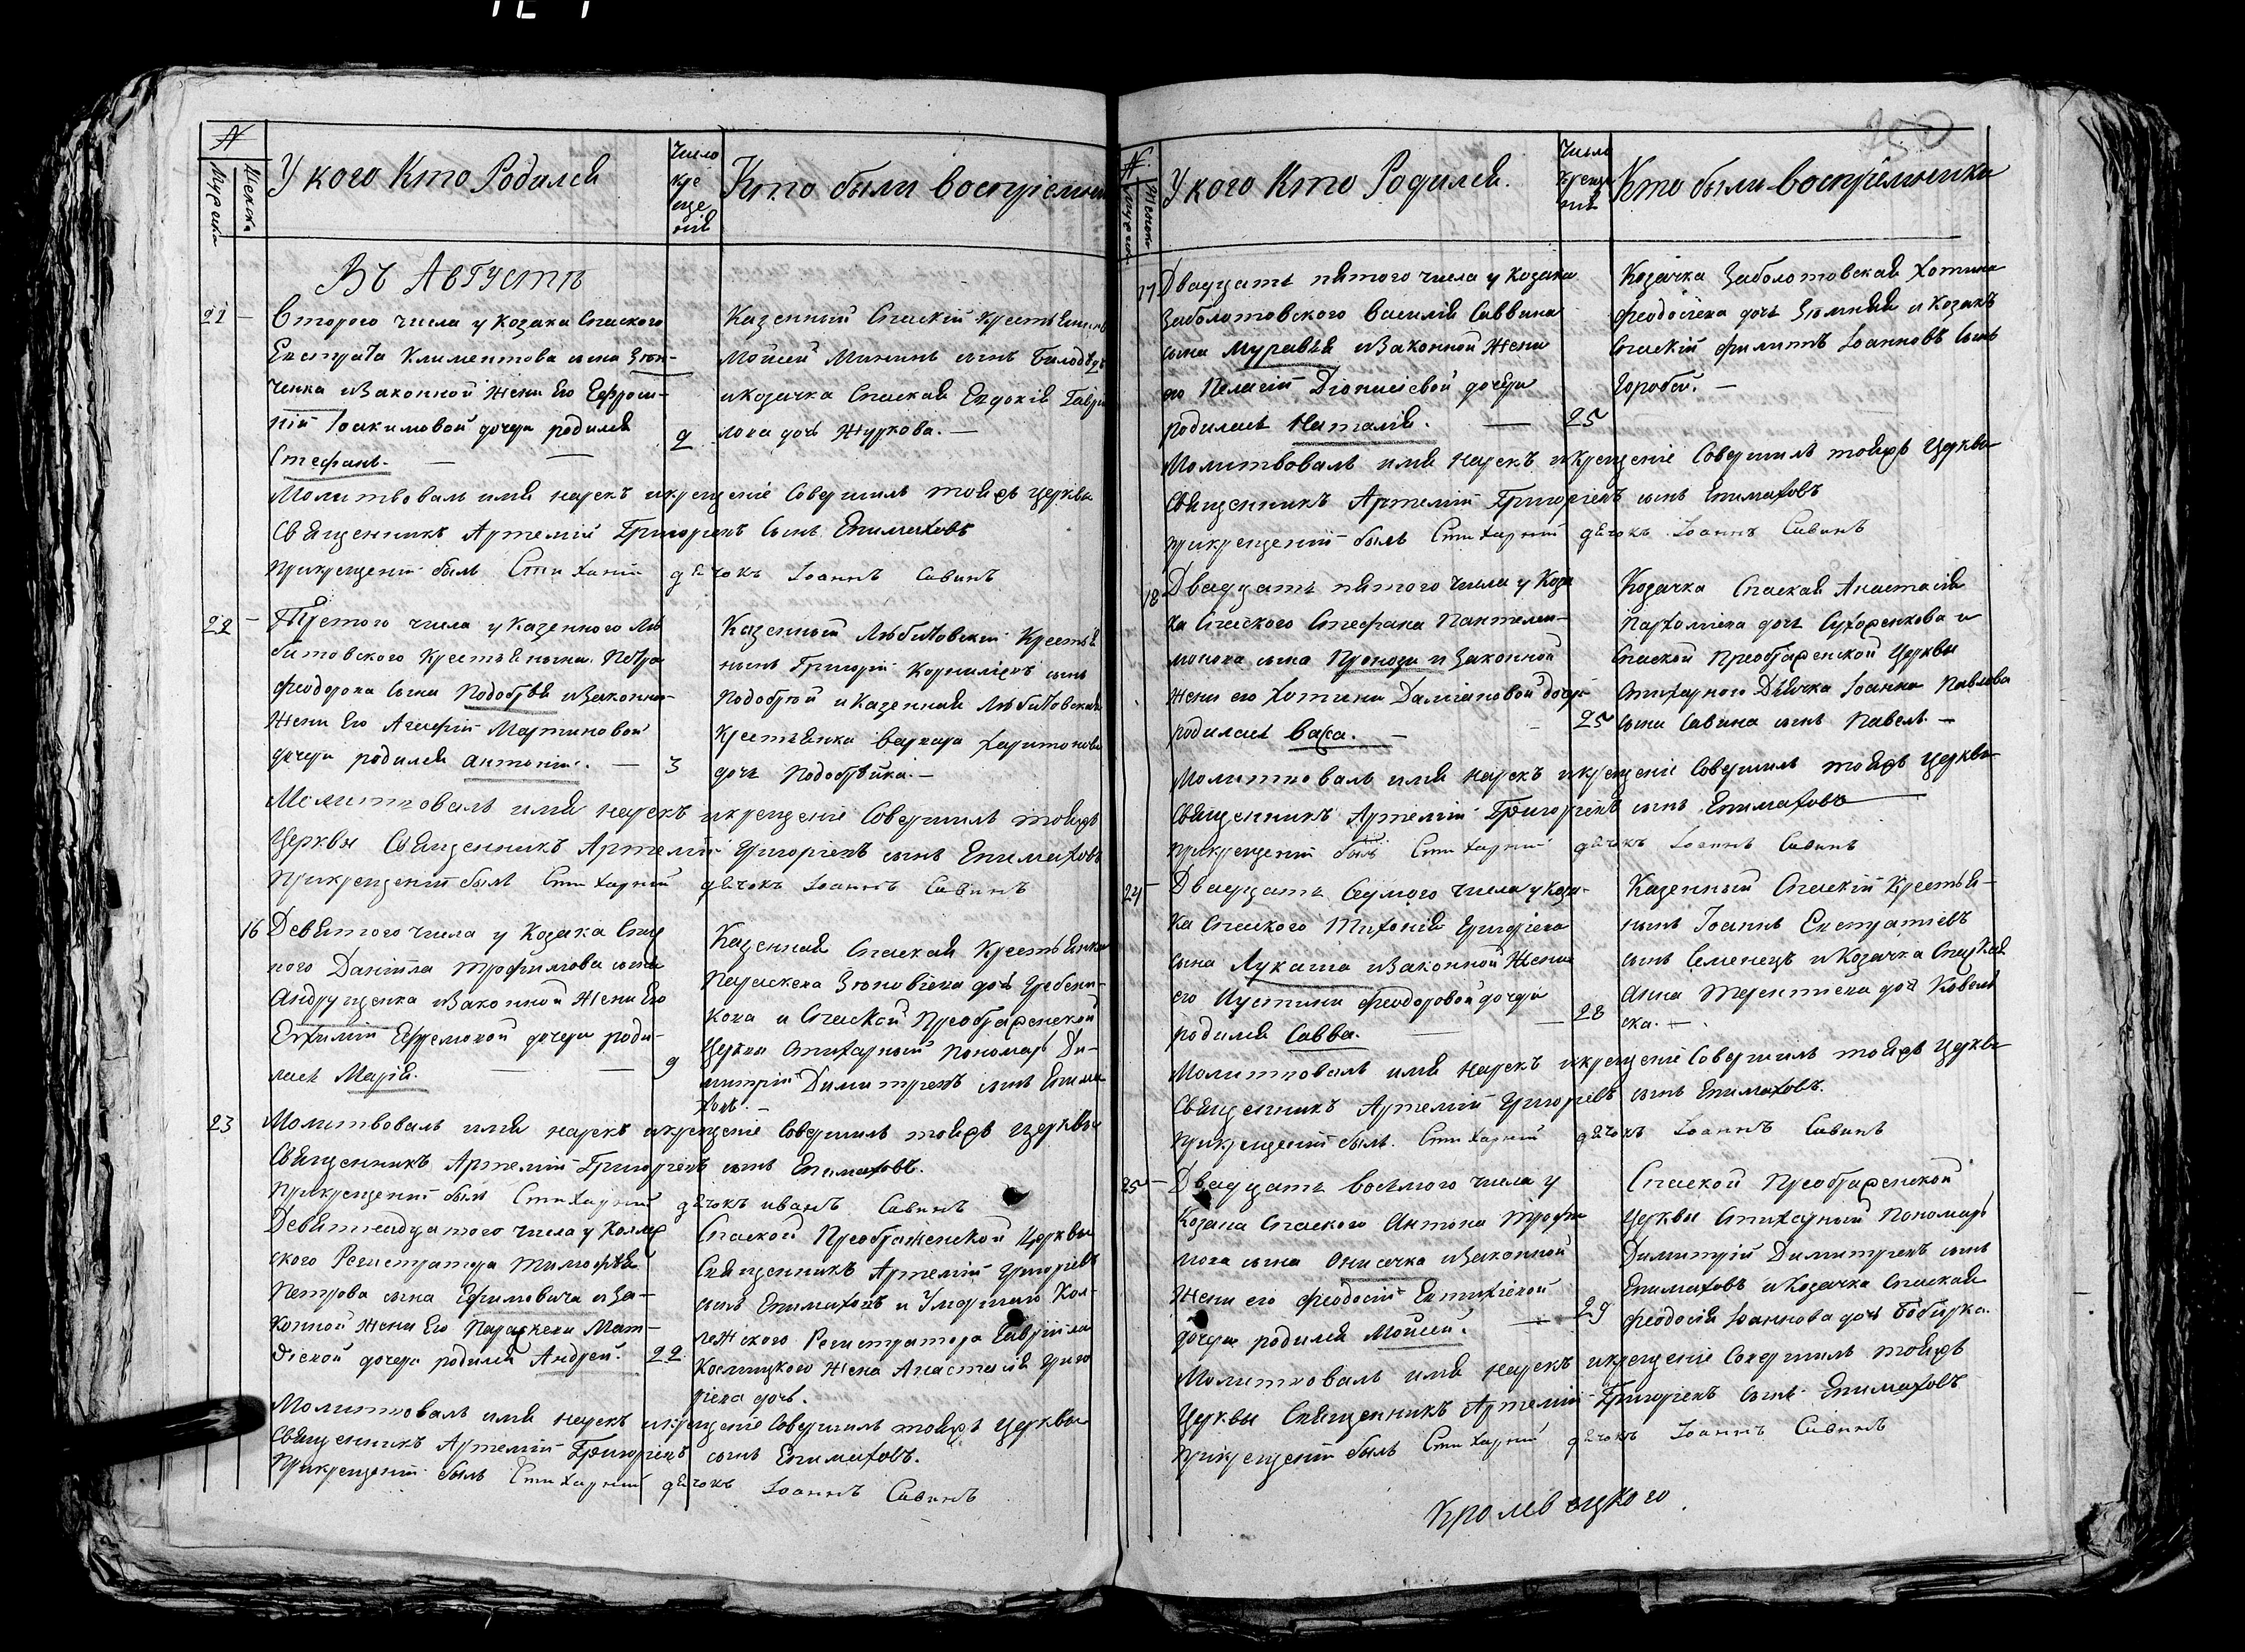 №
Мужеска
Женска
У кого Кто Родился
Число
кре
ще
нія
Кто были воспріемни
Въ Августѣ
21 — Второго числа у козака Спаского
Евстрата Климентова сына Зѣн-
ченка и законной жени его Ефроси-
ніи Іоакимовой дочери родился
Стефанъ. — — 2
Казенный Спаскій крестьянинъ
Мойсей Мининъ сынъ Билодѣдъ
и козачка Спаская Евдокія Гаври
лова дочь Журкова. —
Молитвовалъ имя нарекъ и крещеніе совершилъ тояжъ церквы
Священникъ Артемій Григоріевъ сынъ Епимаховъ
При крещеніи былъ Стихарній дячокъ Іоаннъ Савинъ
22 — Третого числа у казенного Лю
битовского крестьянина Петра
Феодорова сына Подобѣя и законно-
жени его Агафіи Мартиновой
дочери родился Антоній. — 3
Казенный Любитовский крестья
нинъ Григорій Корниліевъ сынъ
Подобрій и казенная Любитовская
крестьянка Варвара Харитонова
дочь Подобѣйка. —
Молитвовалъ имя нарекъ и крещеніе совершилъ тояжъ
Церквы Священникъ Артемій Григоріевъ сынъ Епимаховъ
При крещеніи былъ Стихарній дячокъ Іоаннъ Савинъ
16 Девятого числа у козака Спас
кого Даніила Трофимова сына
Андрущенка и законной жени его
Евфиміи Ефремовой дочери роди-
лась Марія. — — 9
Казенная Спаская крестьянка
Параскева Зѣновіева дочь Гребени-
кова и Спаской Преображенской
Церкви стихарный пономарь Ди-
митрій Димитріевъ сынъ Епима
ховъ. —
23 Молитвовалъ имя нарекъ и крещеніе совершилъ тояжъ церквы
Священникъ Артемій Григоріевъ сынъ Епимаховъ.
При крещеніи былъ Стихарній дячокъ Иванъ Савинъ
Девятнадцатого числа у Коллеж
ского Регистратора Тимофѣя
Петрова сына Ефимовича и за-
конной жени его Параскеви Мат-
ѳіевой дочери родился Андрей. 22.
Спаской Преображенской Церквы
Священникъ Артемій Григоріевъ
сынъ Епимаховъ и умершаго Кол-
лежского Регистратора Гавріила
Костицкого жена Анастасія Григо
ріева дочь.
Молитвовалъ имя нарекъ и крещеніе совершилъ тояжъ Церквы
Священникъ Артемій Григоріевъ сынъ Епимаховъ.
При крещеніи былъ Стихарній дячокъ Іоаннъ Савинъ
250
№.
Женск
У кого Кто Родился.
Число
креще
нія
Кто были воспріемники
17 Двадцать пятого числа у козака
Заболотовского Василія Саввина
сына Муравья и законной жени
его Пелагіи Діонисіевой дочери
родилась Наталія. — 25
Козачка Заболотовская Хотина
Феодосіева дочь Зюмняя и козакъ
Спаскій Филипъ Іоанновъ сынъ
Горобей. —
Молитвовалъ имя нарекъ и крещеніе совершилъ тояжъ Церквы
Священникъ Артемій Григоріевъ сынъ Епимаховъ
при крещеніи былъ Стихарній дячокъ Іоаннъ Савинъ
18 Двадцать пятого числа у коза
ка Спаского Стефана Пантелеи-
монова сына Проноза и законной
жени его Хотини Даміановой дочери
родилась Васса. — — 25
Козачка Спаская Анастасія
Пархоміева дочь Сухоренкова и
Спаской Преображенской Церквы
стихарного дьячка Іоанна Павлова
сына Савина сынъ Павелъ. —
Молитвовалъ имя нарекъ и крещеніе совершилъ тояжъ Церквы
Священникъ Артемій Григоріевъ сынъ Епимаховъ
при крещеніи былъ Стихарній дячокъ Іоаннъ Савинъ
24 — Двадцать седмого числа у коза-
ка Спаского Тихонія Григоріева
сына Лукаша и законной жени
его Иустини Феодоровой дочери
родился Савва. — — 28
Казенный Спаскій крестья-
нинъ Іоаннъ Евстратіевъ
сынъ Семенецъ и козачка Спаская
Анна Терентіева дочь Ковалев
ска. —
Молитвовалъ имя нарекъ и крещеніе совершилъ тояжъ Церквы
Священникъ Артемій Григоріевъ сынъ Епимаховъ.
при крещеніи былъ Стихарній дячокъ Іоаннъ Савинъ
25 — Двадцать восьмого числа у
козака Спаского Антона Трофи
мова сына Онисечка и законной
жени его Феодосіи Евтихіевой
дочери родился Мойсей. — 29
Спаской Преображенской
Церквы стихарный пономарь
Димитрій Димитріевъ сынъ
Епимаховъ и козачка Спаская
Феодосія Іоаннова дочь Бобирка.
Молитвовалъ имя нарекъ и крещеніе совершилъ тояжъ
Церквы Священникъ Артемій Григоріевъ сынъ Епимаховъ
при крещеніи былъ Стихарній дячокъ Іоаннъ Савинъ
Кролевецкого